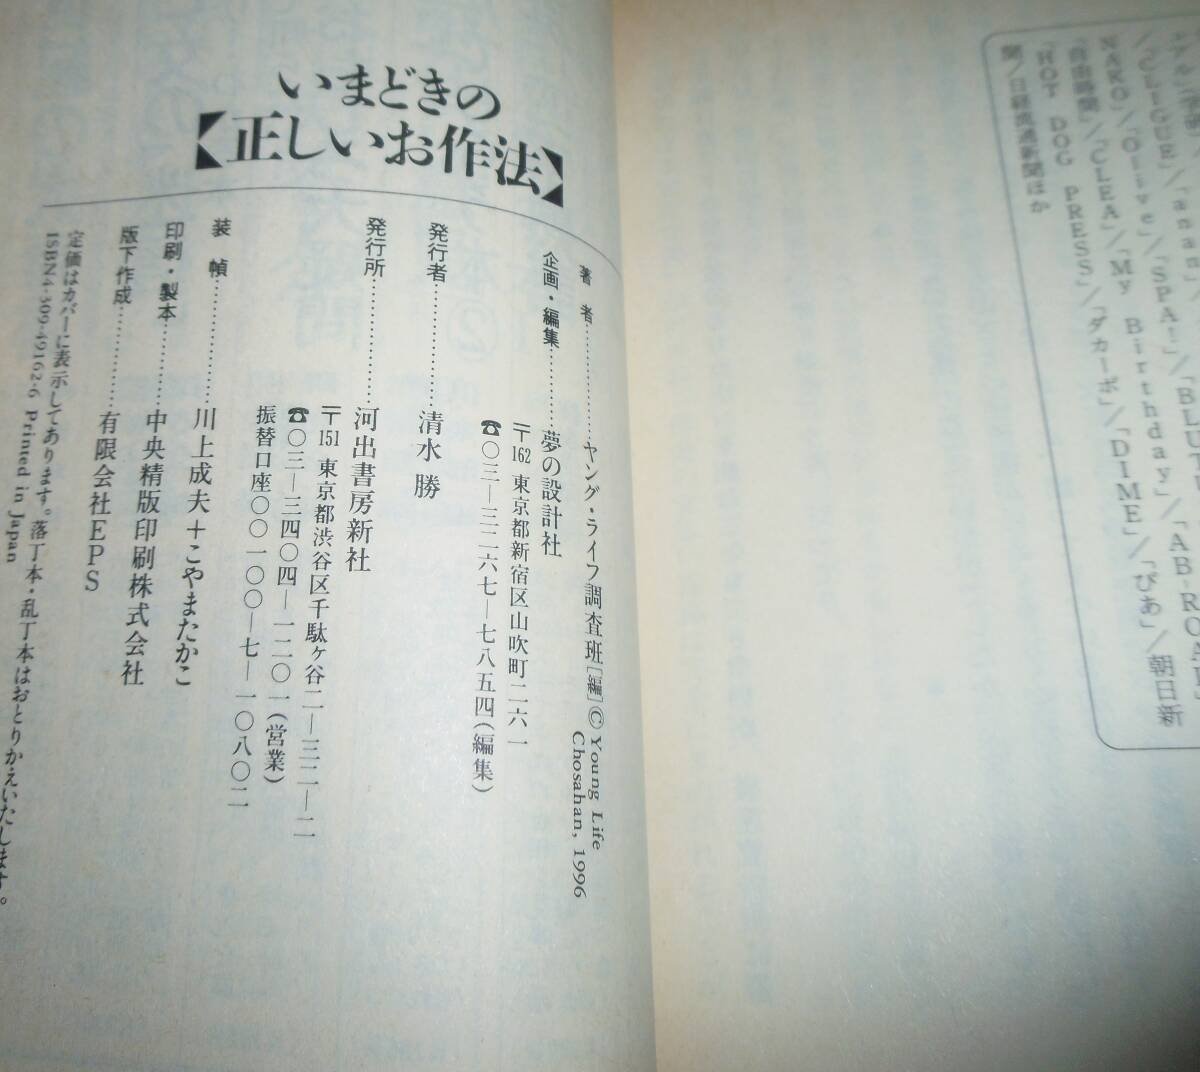 「CLIQUE」/「anan」/
NARO/「Olive」/「SPA!」/「BLUTU
「自由時間」/「CLEA」/「My Birthday」/「AB-ROAD
「HOT DOG PRESS」/「ダカーポ」/「DIME」/「ぴあ」/朝日新
聞/日経流通新聞ほか
いまどきの
【正しいお作法】
著者…………ヤング・ライフ調査班[編]© Young Life
Chosahan, 1996
企画・編集…………夢の設計社
〒162 東京都新宿区山吹町二六一
☎〇三―三二六七―七八五四(編集)
発行者…………清水 勝
発行所…………河出書房新社
〒151 東京都渋谷区千駄ヶ谷二―三二―二
☎〇三―三四〇四―一二〇一(営業)
振替口座〇〇一〇〇―七―一〇八〇二
装幀…………川上成夫+こやまたかこ
印刷・製本…………中央精版印刷株式会社
版下作成…………有限会社EPS
定価はカバーに表示してあります。落丁本・乱丁本はおとりかえいたします。
ISBN4-309-49162-6 Printed in Japan